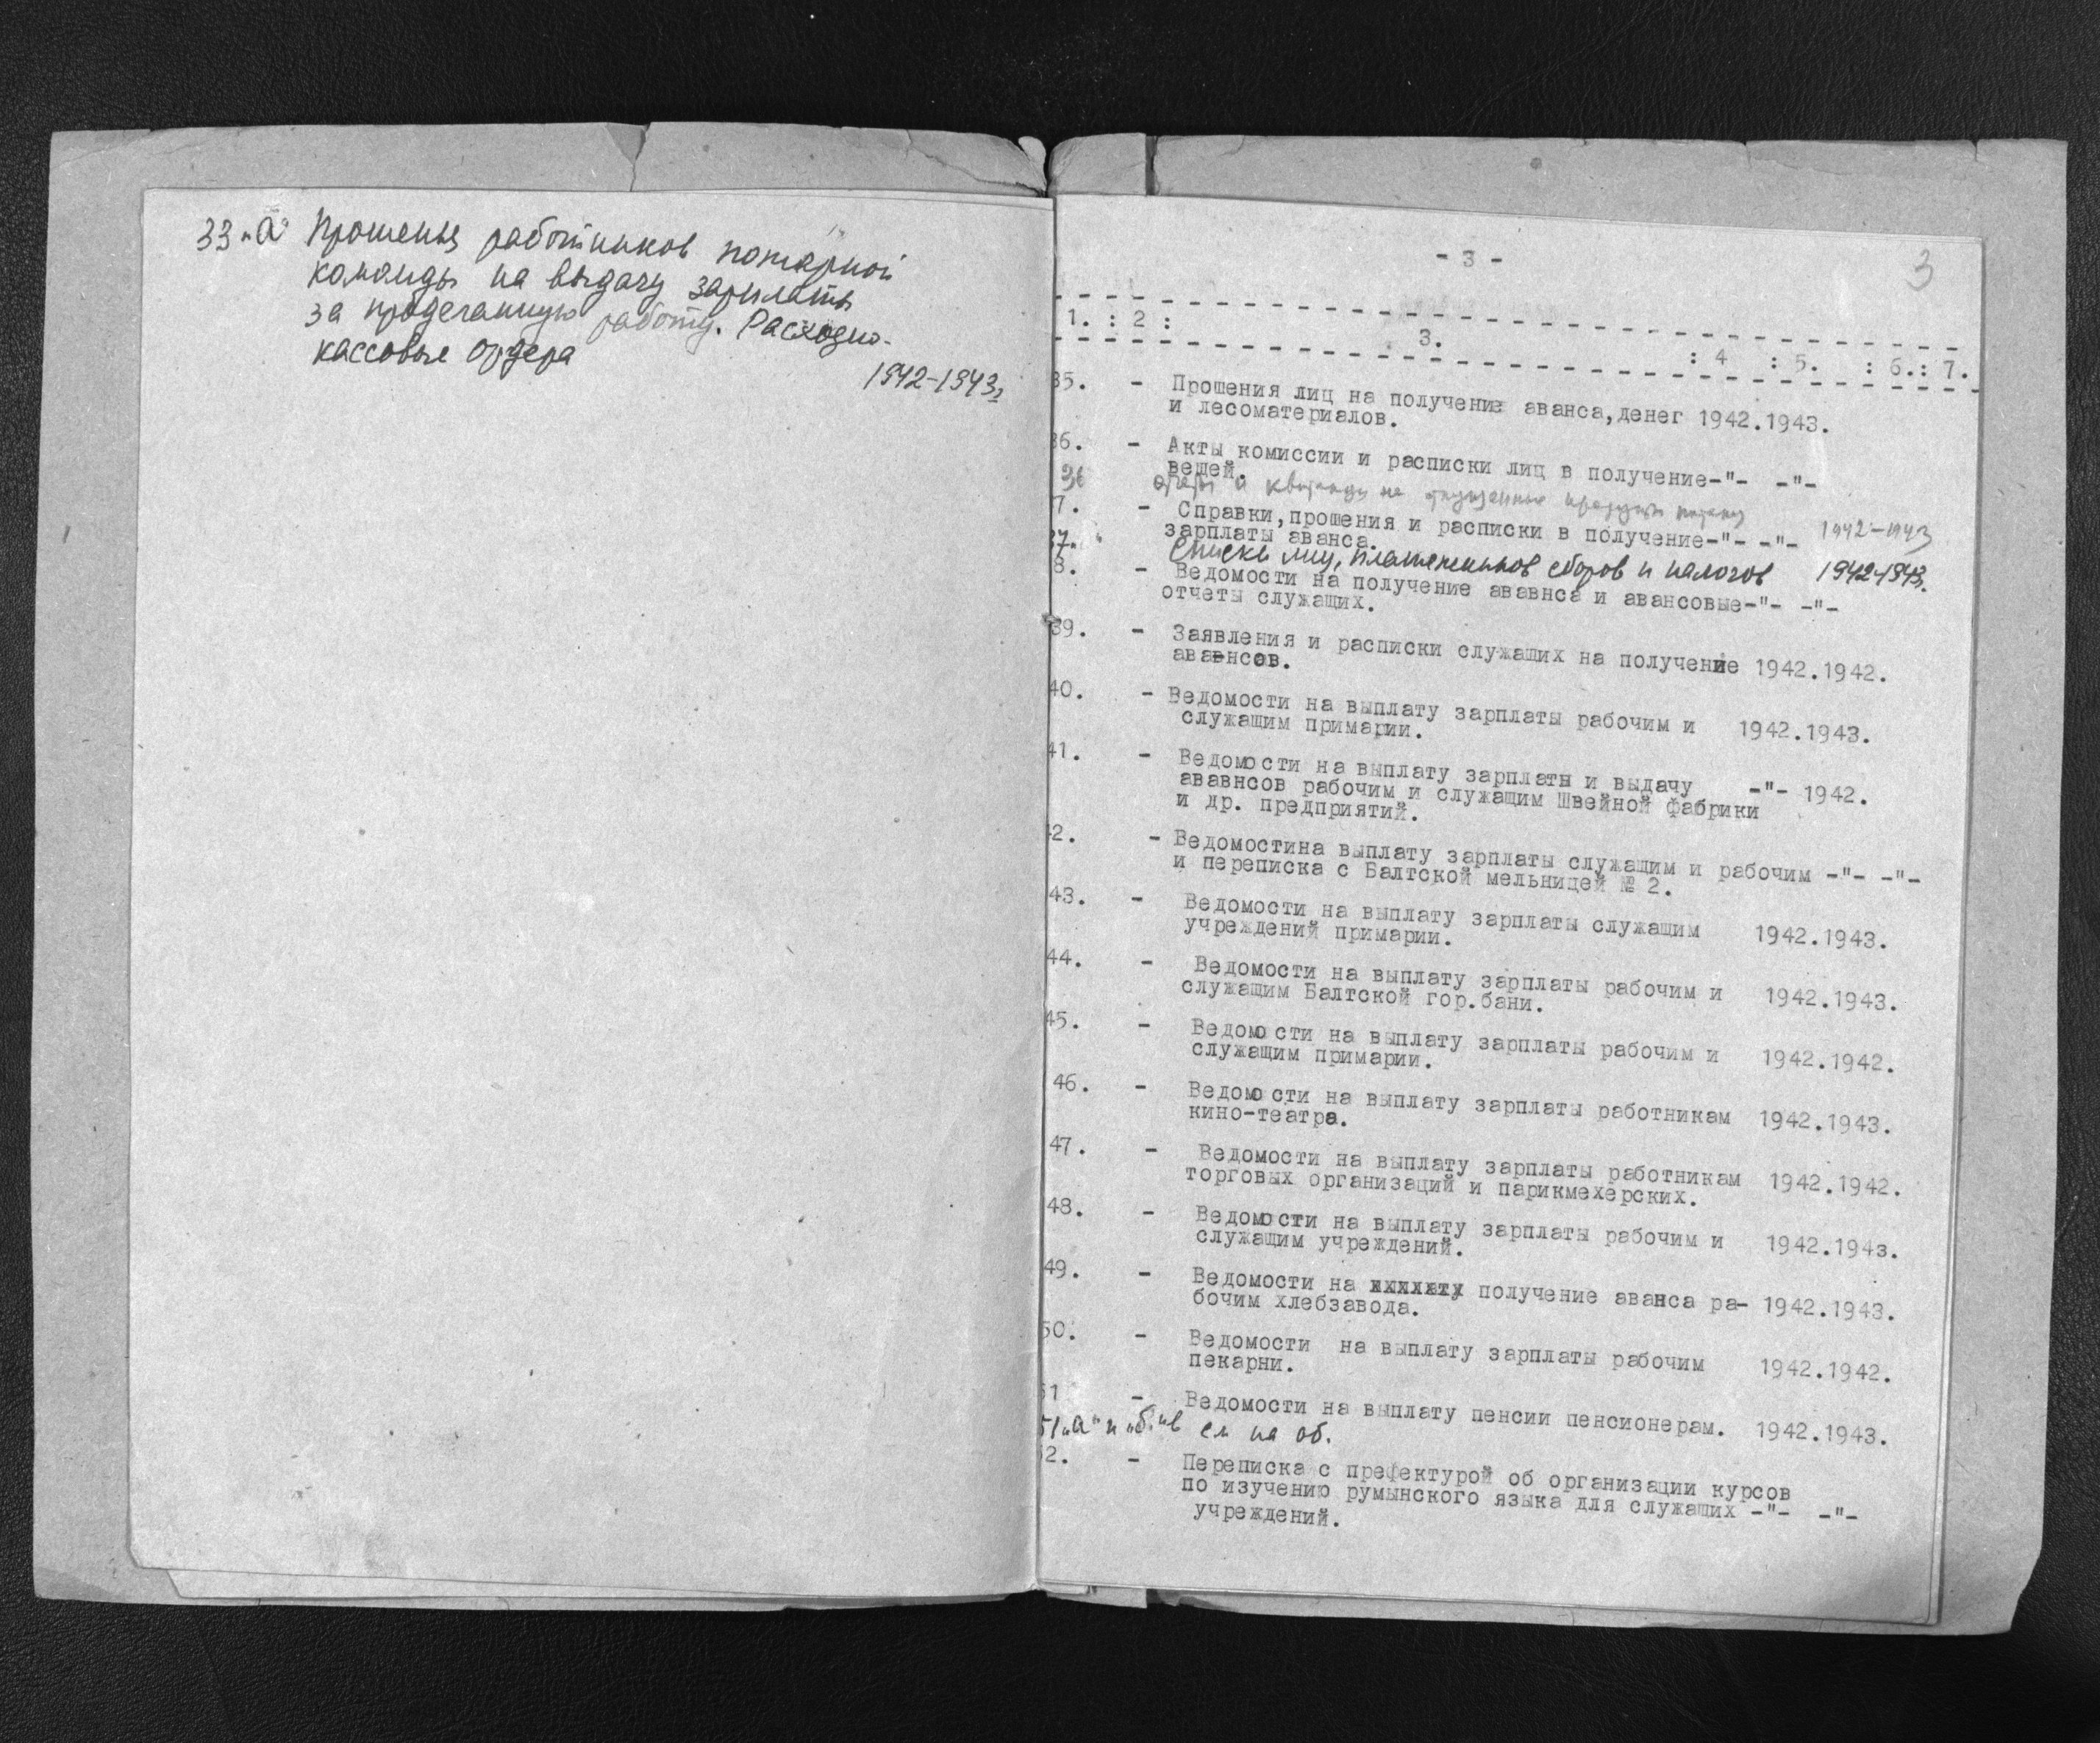 33 „а" Прошения работников пожарной
команды на выдачу зарплаты
за проделанную работу. Расходно-
кассовые ордера
1942-1943г
- 3 -
3
1. : 2 : 3. : 4 : 5. : 6.: 7.
35. - Прошения лиц на получение аванса,денег 1942.1943.
и лесоматериалов.
36. - Акты комиссии и расписки лиц в получение-"- -"-
вещей.
36 и на 1942-1943
7. - Справки,прошения и расписки в получение-"- -"-
зарплаты аванса.
37 Списки лиц, плательщиков сборов и налогов 1942-1943.
8. - Ведомости на получение ававнса и авансовые-"- -"-
отчеты служащих.
39. - Заявления и расписки служащих на получение 1942.1942.
авансов.
40. - Ведомости на выплату зарплаты рабочим и 1942.1943.
служащим примарии.
41. - Ведомости на выплату зарплаты и выдачу -"- 1942.
ававнсов рабочим и служащим Швейной фабрики
и др. предприятий.
42. - Ведомостина выплату зарплаты служащим и рабочим -"- -"-
и переписка с Балтской мельницей № 2.
43. - Ведомости на выплату зарплаты служащим 1942.1943.
учреждений примарии.
44. - Ведомости на выплату зарплаты рабочим и 1942.1943.
служащим Балтской гор.бани.
45. - Ведомости на выплату зарплаты рабочим и 1942.1942.
служащим примарии.
46. - Ведомости на выплату зарплаты работникам 1942.1943.
кино-театра.
47. - Ведомости на выплату зарплаты работникам 1942.1942.
торговых организаций и парикмехерских.
48. - Ведомости на выплату зарплаты рабочим и 1942.194з.
служащим учреждений.
49. - Ведомости на получение аванса ра- 1942.1943.
бочим хлебзавода.
50. - Ведомости на выплату зарплаты рабочим 1942.1942.
пекарни.
51 - Ведомости на выплату пенсии пенсионерам. 1942.1943.
51„а" и „б" см на об.
52. - Переписка с префектурой об организации курсов
по изучению румынского языка для служащих -"- -"-
учреждений.